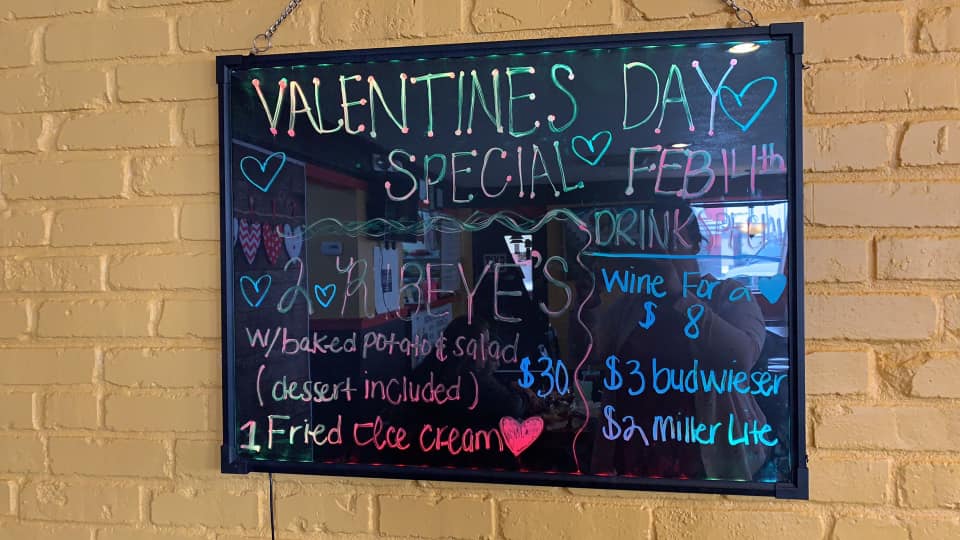 VALENTINES DAY
SPECIAL FEB 14th
2 RIBEYE'S
w/baked potato & salad
(dessert included) $30
1 Fried Ice cream
DRINK SPECIAL
Wine For a
$ 8
$3 budwieser
$2 Miller Lite